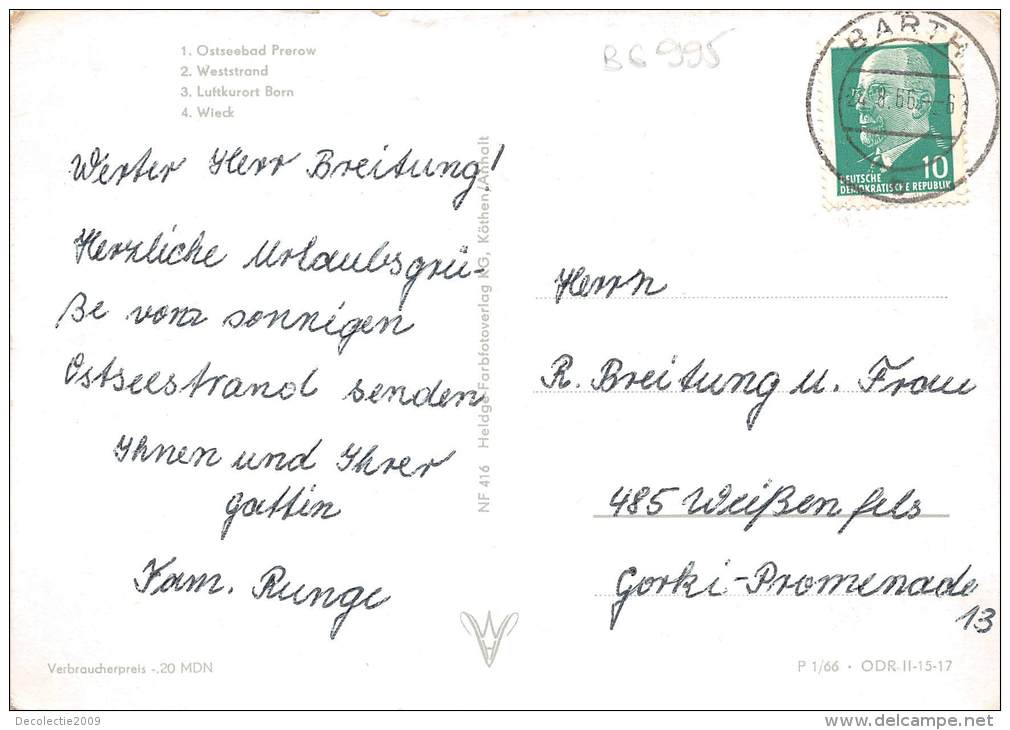 1. Ostseebad Prerow
2. Weststrand
3. Luftkurort Born
4. Wieck
BG 995
BARTH
24.8.66
10
DEUTSCHE
DEMOKRATISCHE REPUBLIK
Werter Herr Breitung!
Herzliche Urlaubsgrü-
ße vom sonnigen
Ostseestrand senden
Ihnen und Ihrer
Gattin
Fam. Runge
NF 416 Heldge-Farbfotoverlag KG, Köthen/Anhalt
Herrn
R. Breitung u. Frau
485 Weißenfels
Gorki-Promenade
13
Verbraucherpreis -,20 MDN
P 1/66 · ODR-II-15-17
Decolectie2009
www.delcampe.net